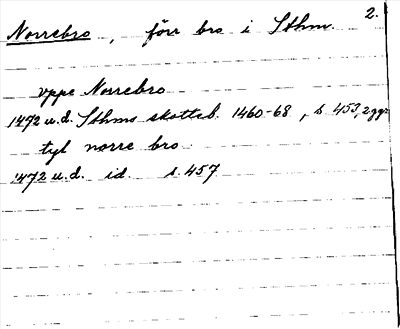 Norrebro, förr bro i Sthm. 2.
vppe Norrebro
1472 u.d. Sthms skotteb. 1460-68, s. 453, 2 ggr
tyl norre bro
1472 u.d. id. s. 457